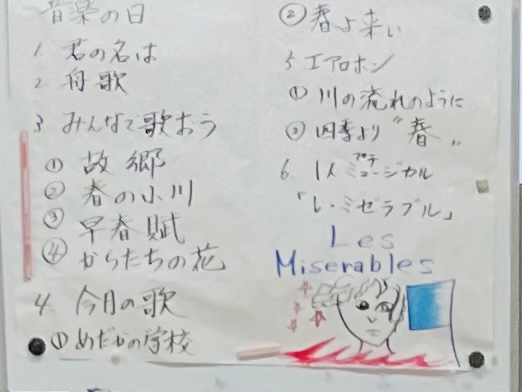 音楽の日
1. 君の名は
2. 舟歌
3 みんなで歌おう
① 故郷
② 春の小川
③ 早春賦
④ からたちの花
4. 今月の歌
① めだかの学校
② 春よ来い
5 エアロホン
① 川の流れのように
② 四季より〝春〟
6. 1人プチミュージカル
「レ・ミゼラブル」
Les
Miserables